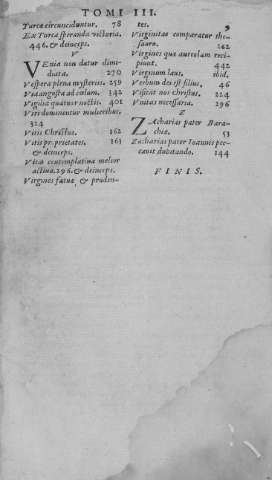 TOMI III.
Turcæ circunciduntur. 78
Ex Turca speranda victoria.
446. & deinceps.
V
VEnia non datur dimi-
diata. 270
Vespera plena mysteriis. 259
Via angusta ad cælum. 342
Vigiliæ quatuor noctis. 401
Viri dominentur mulieribus.
324
Vitis Christus. 162
Vitis proprietates. 163
& deinceps.
Vita contemplatiua melior
actiua. 296. & deinceps.
Virgines fatuæ & pruden-
tes. 9
Virginitas comparatur the-
sauro. 262
Virgines quæ aureolam reci-
piunt. 442
Virginum laus. ibid.
Verbum dei est filius. 46
Visitat nos christus. 224
Vnitas necessaria. 296
Z
ZAcharias pater Bara-
chiæ. 53
Zacharias pater Ioannis pec-
cauit dubitando. 144
FINIS.